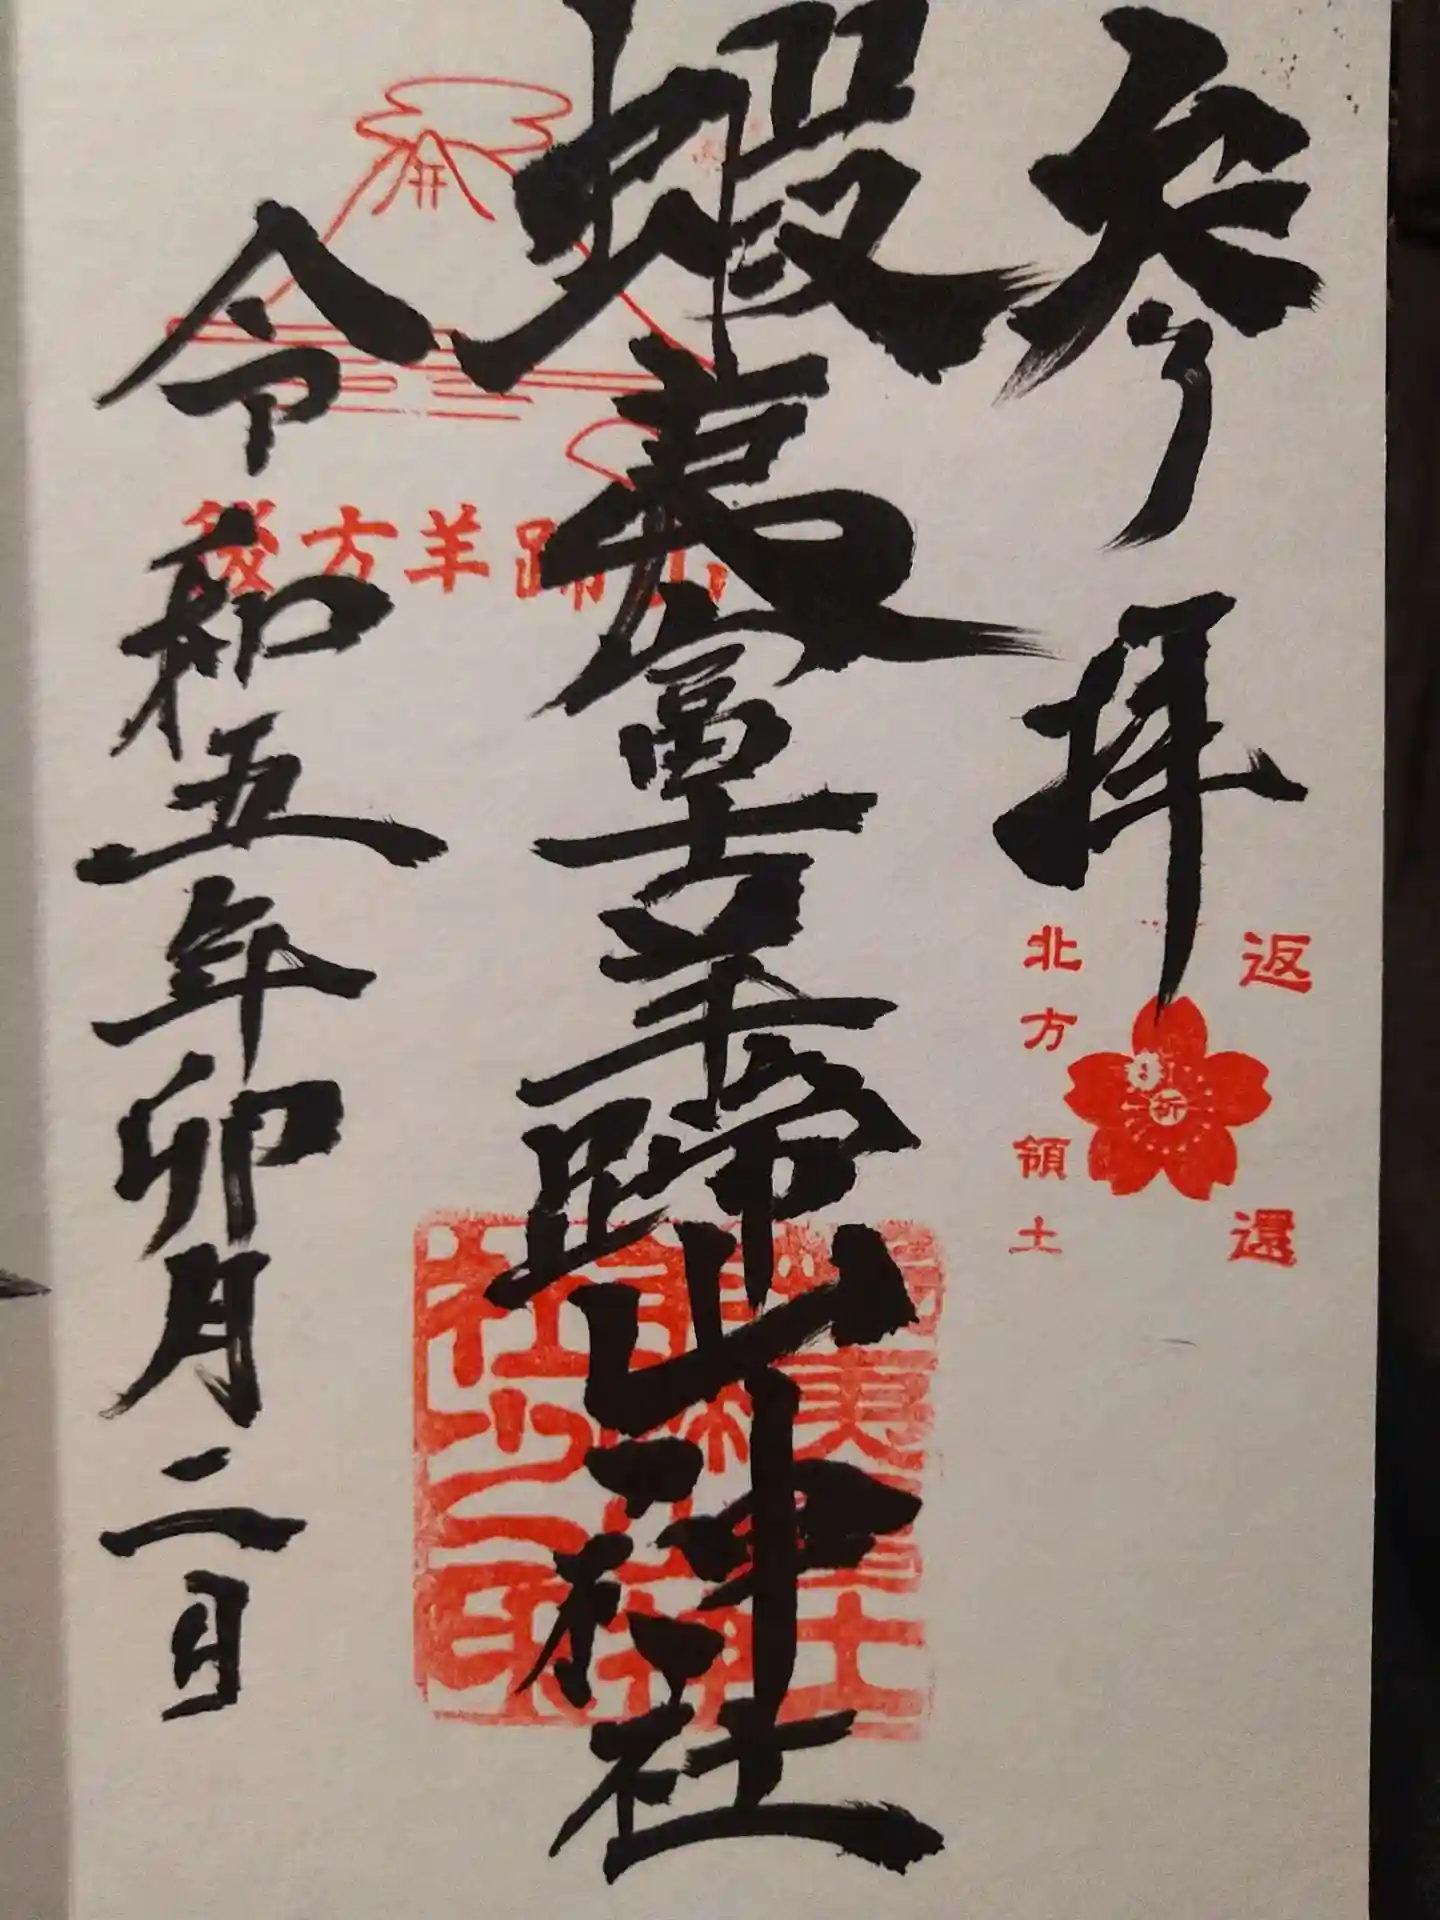 参拝
返還
祈
北方領土
蝦夷富士羊蹄山神社
後方羊蹄山
令和五年卯月二日